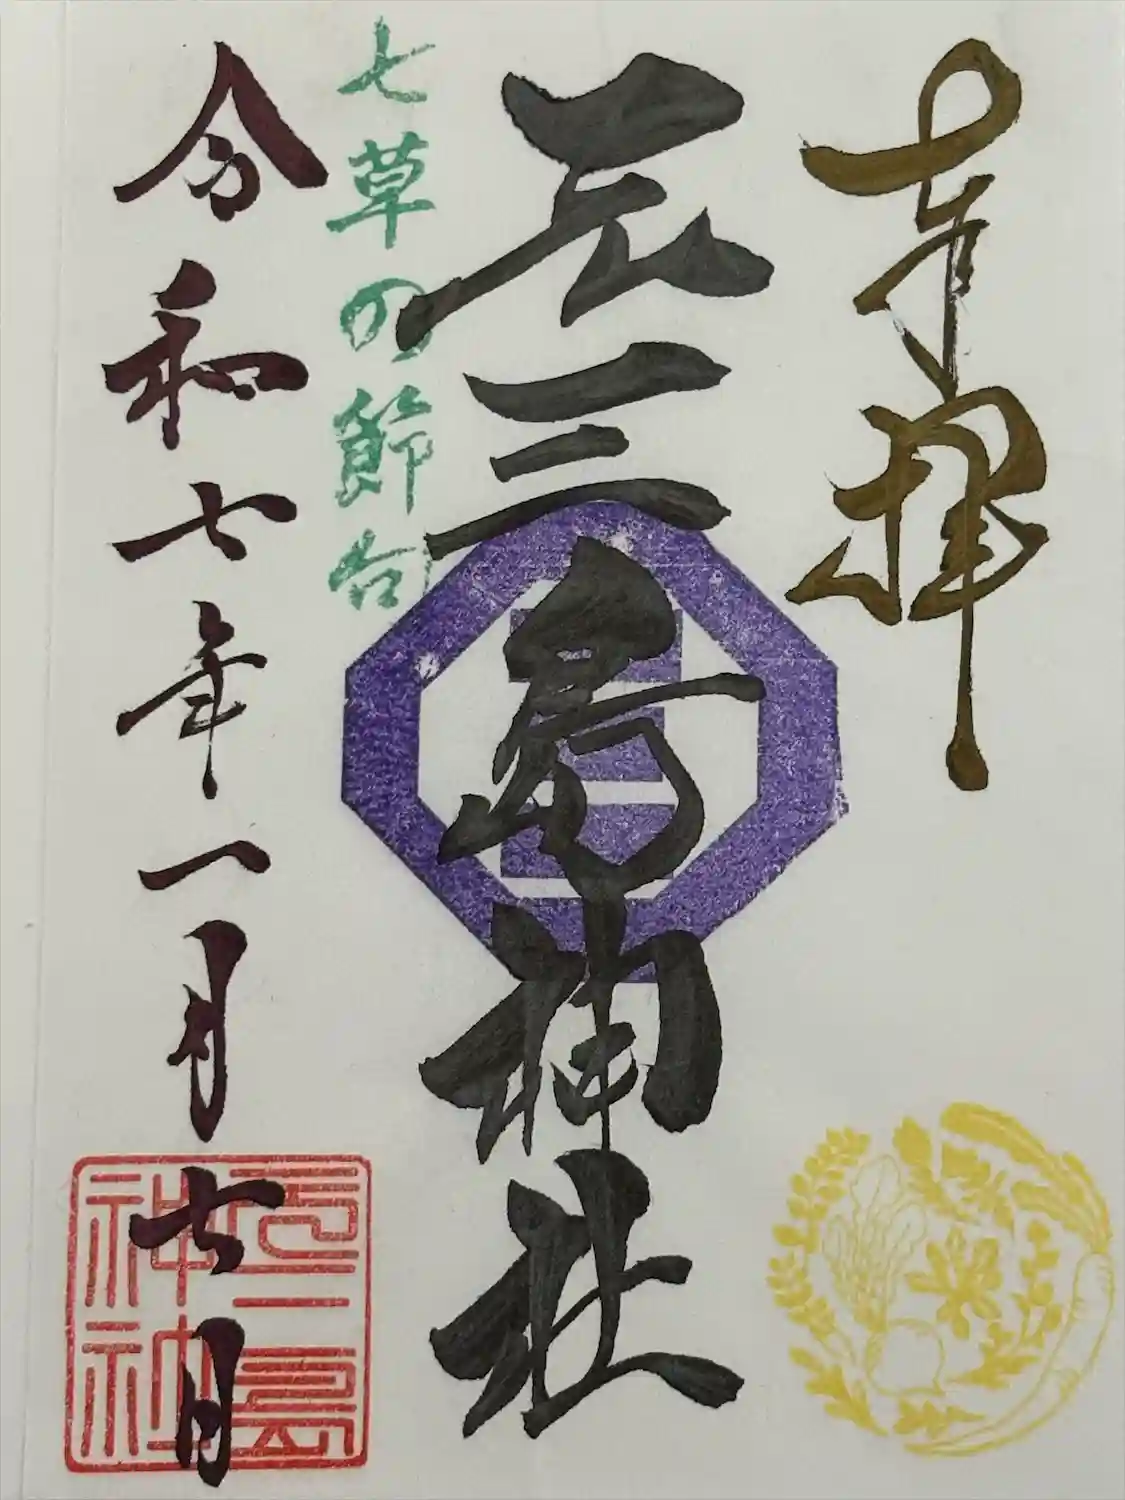 奉拝
元三島神社
七草の節句
令和七年一月七日
元三島
神社